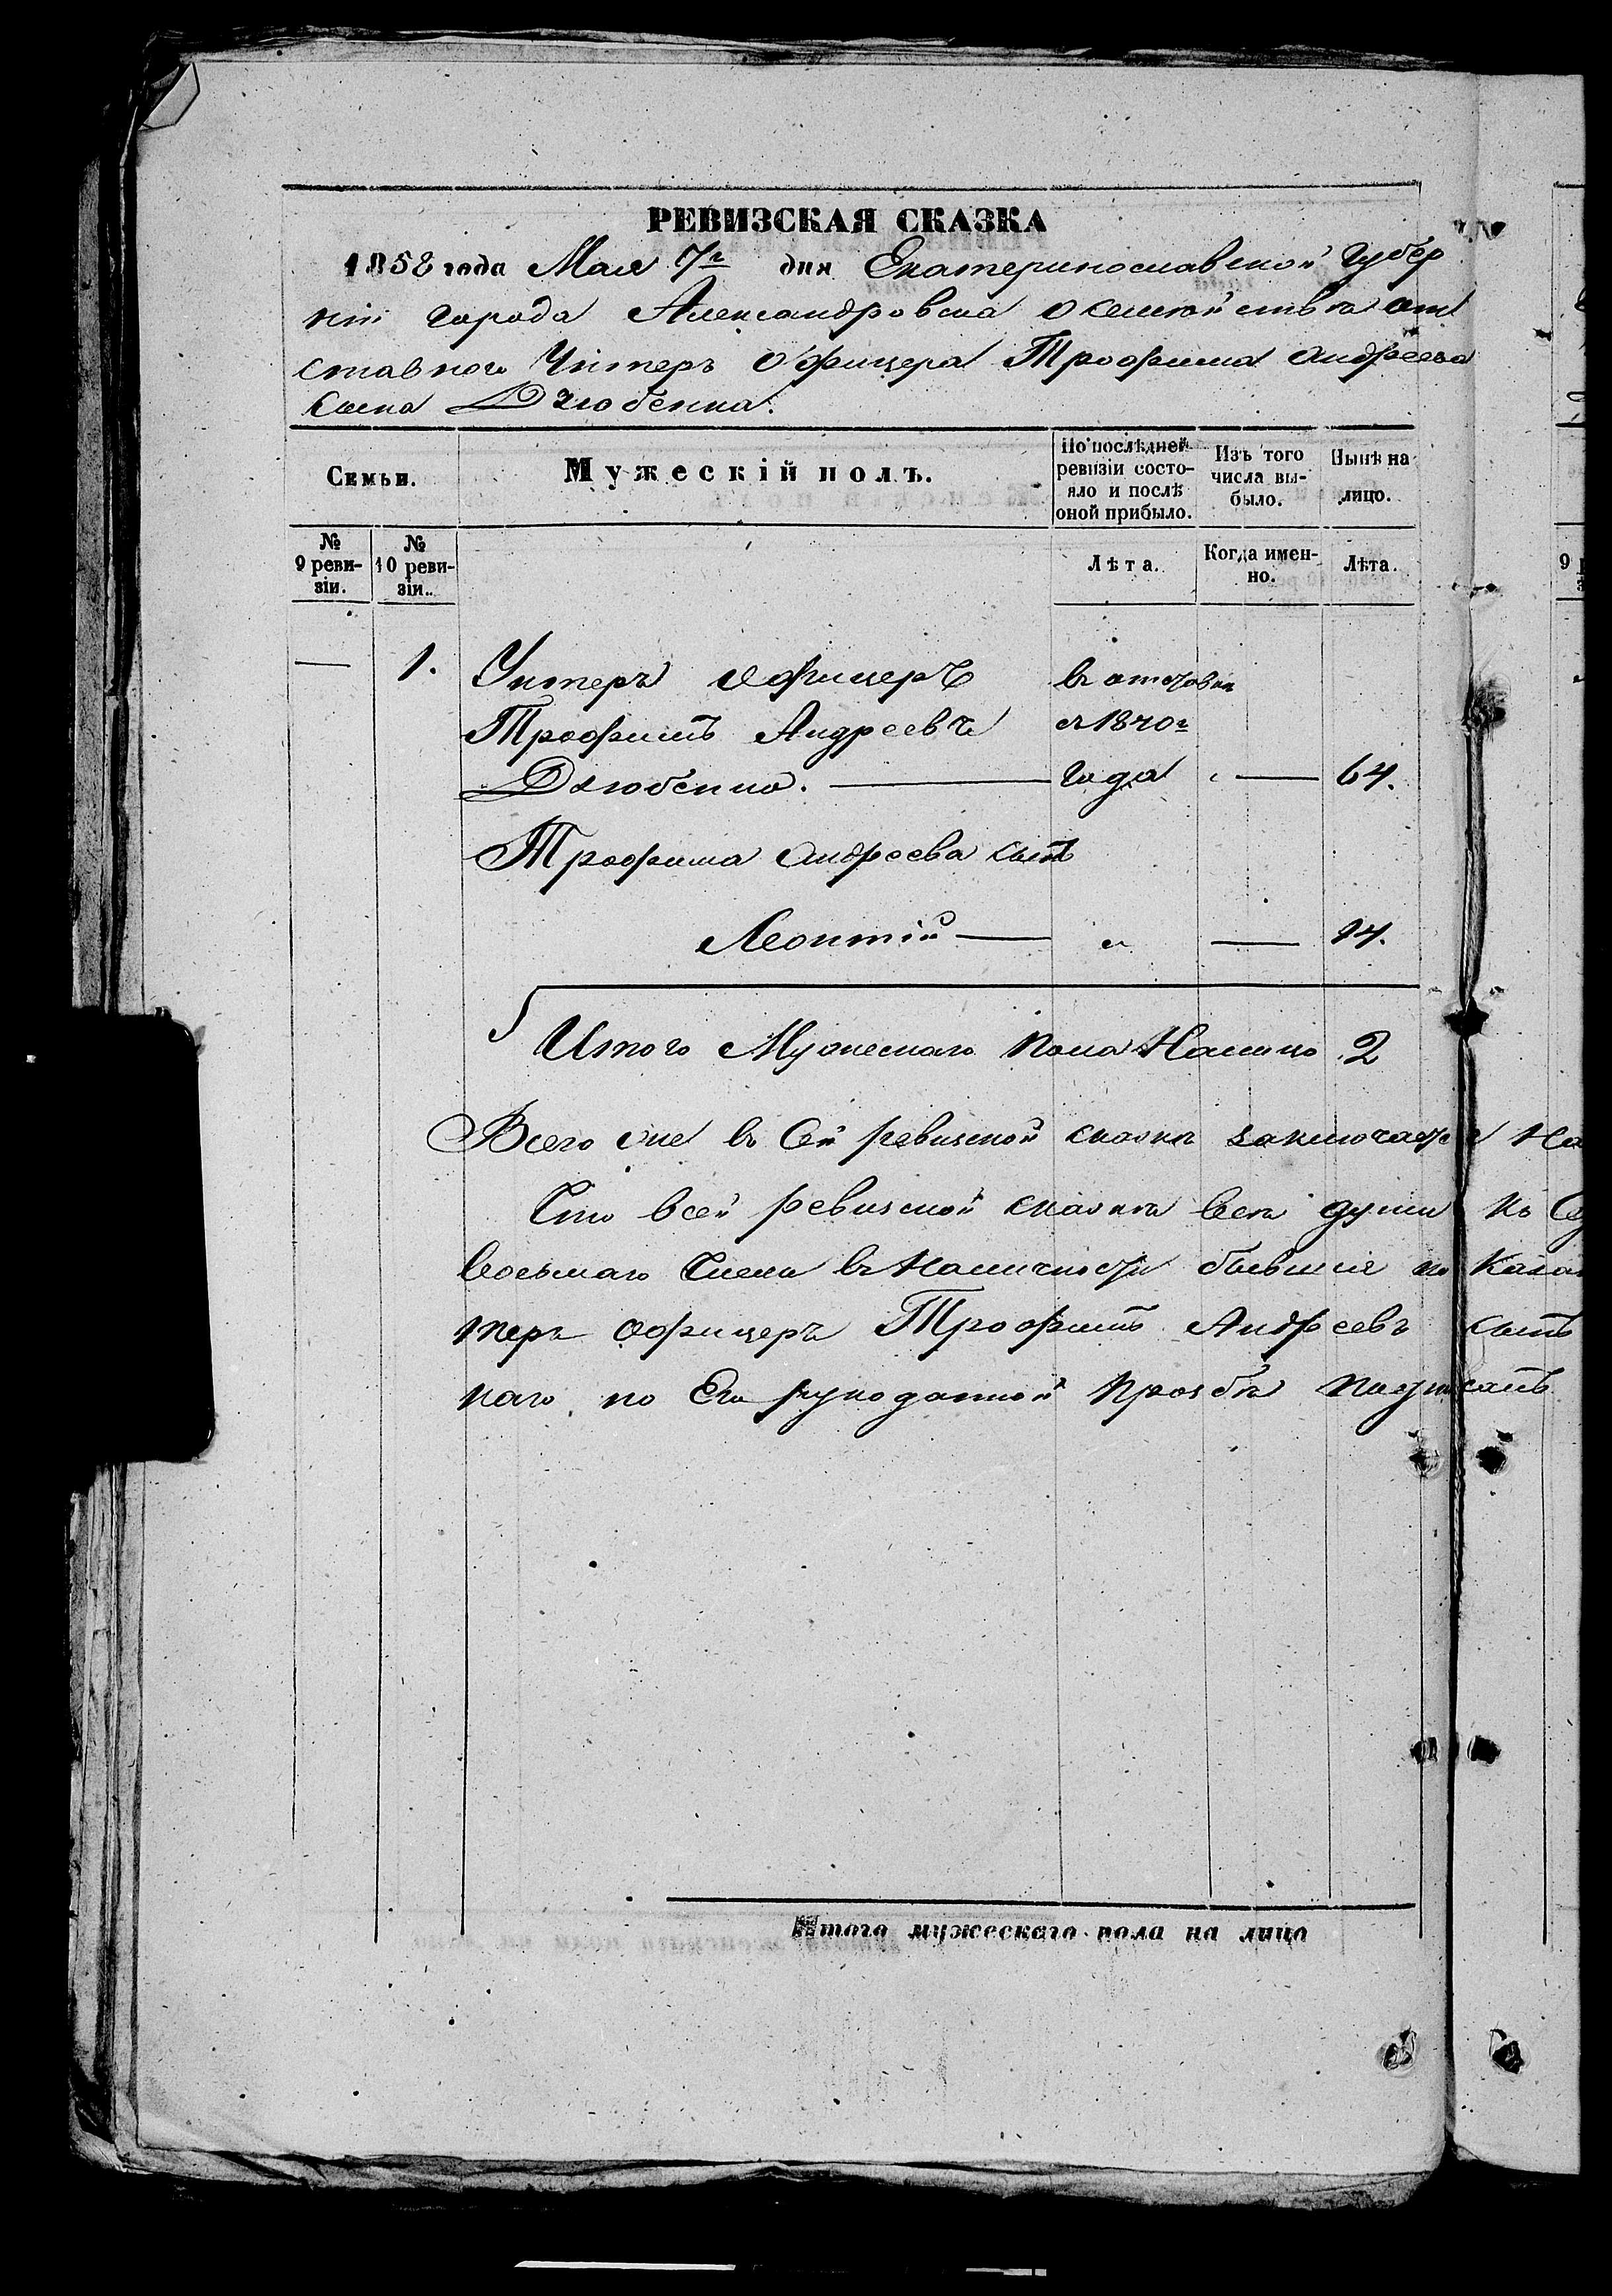 РЕВИЗСКАЯ СКАЗКА
1858 года Мая 7го дня Екатеринославской Губер
ніи города Александровска о семѣйствѣ от
ставного Унтеръ Офицера Трофима Андреева
сына Дзюбенка.
Семьи.
Мужескій полъ.
По послѣдней ревизіи состо-
яло и послѣ оной прибыло.
Изъ того числа вы-
было.
Нынѣ на лицо.
№ 9 реви-
зіи.
№ 10 реви-
зіи.
Лѣта.
Когда имен-
но.
Лѣта.
— 1. Унтеръ Офицеръ въ отставкѣ
Трофимъ Андреевъ съ 1840го
Дзюбенко. — года „ — 64.
Трофима Андреева сынъ
Леонтій — „ — 14.
Итого Мужескаго пола Налицо 2
Всего же въ Сей ревизской сказкѣ заключается На
Что в сей ревизской сказкѣ всѣ души къ
восьмаго Числа въ Наличности бывшие показа
теръ офицеръ Трофимъ Андреевъ сынъ
наго по Его рукоданной прозбѣ подписалъ
Итого мужескаго пола на лицо
9